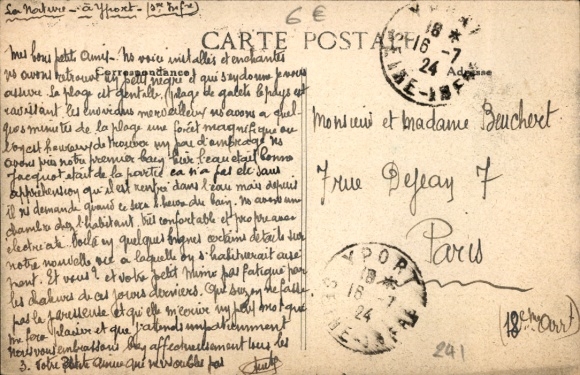 La Norture - à Yport (Sne Infre)
6 €
CARTE POSTALE
Correspondance
Adresse
Mes bons petits amis - Ns voici installés et enchantés
ns avons retrouvé un petit nègre et qui s'en donne je vous
assure la plage est gentille (plage de galets) le pays est
ravissant les environs merveilleux ns avons à quel-
ques minutes de la plage une forêt magnifique où
l'on est heureux de trouver un peu d'ombrage ns
avons pris notre premier bain hier l'eau était bonne
Jacquot était de la partie ça n'a pas été sans
appréhension qu'il est rentré dans l'eau mais depuis
il ns demande quand ce sera l'heure du bain. ns avons une
chambre chez l'habitant très confortable et propre avec
électricité. Voilà en quelques lignes certains détails sur
notre nouvelle vie à laquelle on s'habituerait aisé-
ment. Et vous? et votre petit mimo pas fatigué par
les chaleurs de ces jours derniers. Que Suzy ne fasse
pas la paresseuse et qu'elle m'écrive un petit mot que
me fera plaisir et que j'attends impatiemment
Nous vous embrassons bien affectueusement tous les
3. Votre petite amie qui ne vs oublie pas
Monsieur et Madame Beuchert
7 rue Dejean 7
Paris
(18eme arrt)
YPORT
18 *
16 - 7
24
SEINE-INFRE
YPORT
18 *
16 - 7
24
SEINE-INFRE
241